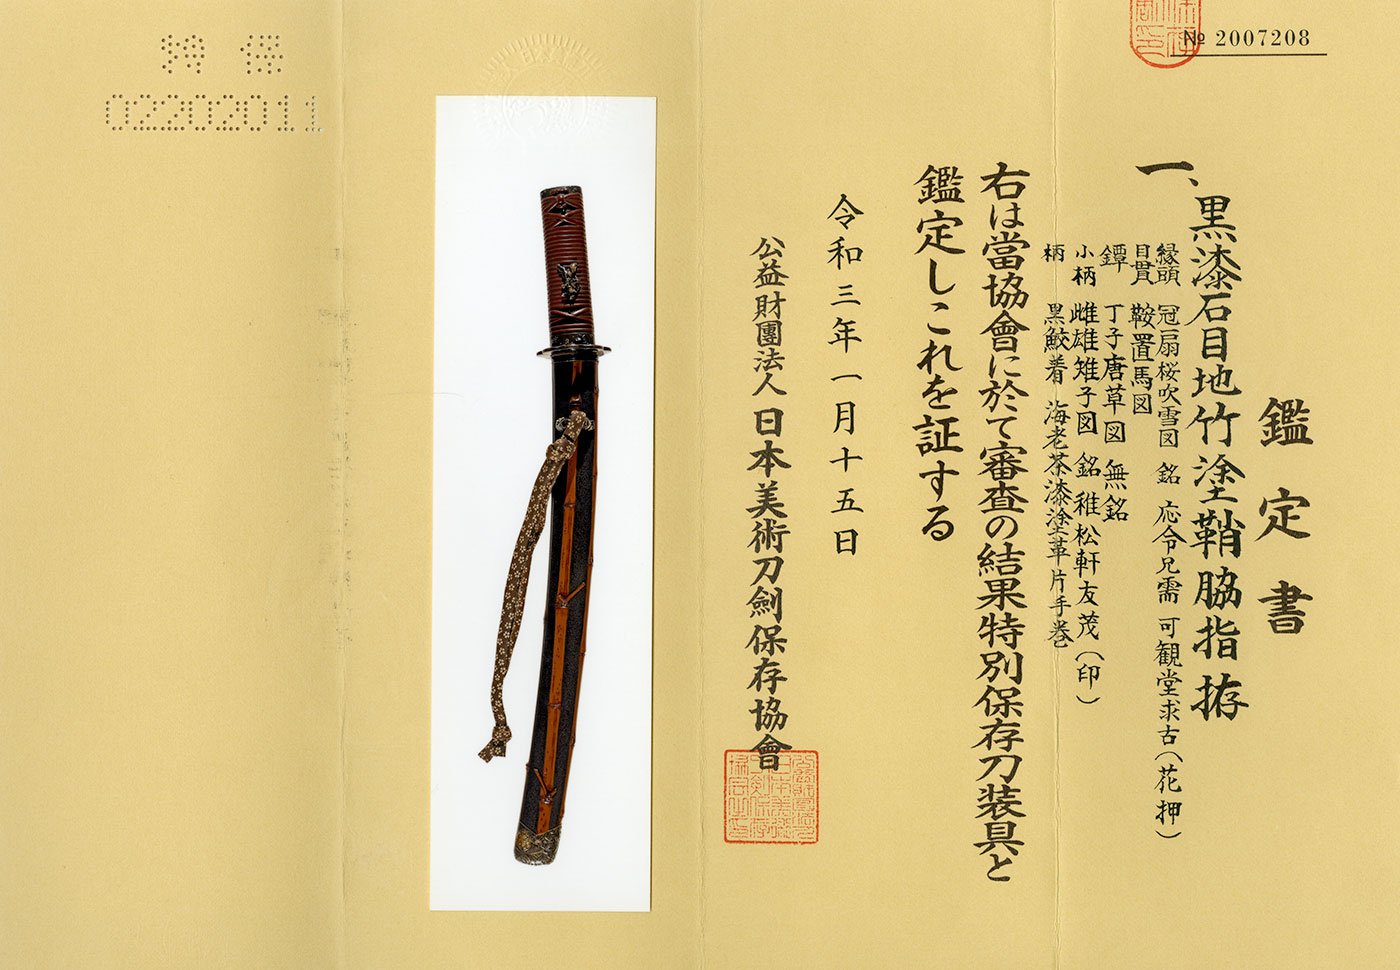 № 2007208
鑑定書
一、黒漆石目地竹塗鞘脇指拵
縁頭 冠扇桜吹雪図 銘 応令兄需 可観堂求古(花押)
目貫 鞍置馬図
鐔 丁子唐草図 無銘
小柄 雌雄雉子図 銘 稚松軒友茂(印)
柄 黒鮫着 海老茶漆塗革片手巻
右は當協會に於て審査の結果特別保存刀装具と
鑑定しこれを証する
令和三年一月十五日
公益財團法人 日本美術刀劍保存協會
特保
02202011